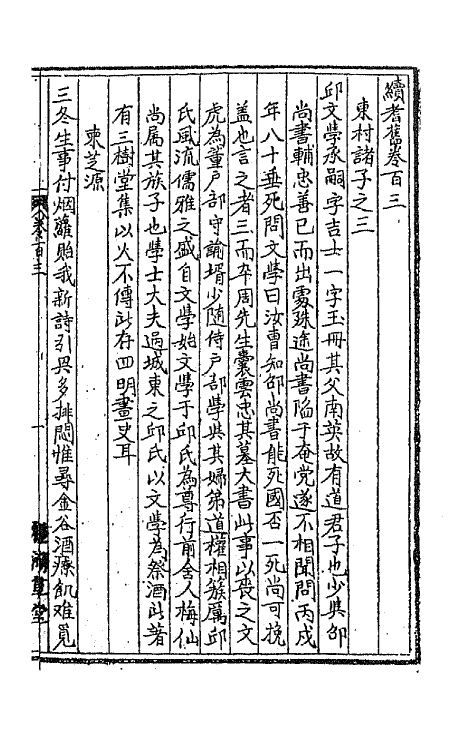 續耆舊卷百三
東村諸子之三
邱文學承嗣字吉士一字玉冊其父南英故有道君子也少與邵
尚書輔忠善已而出處殊途尚書陷于奄党遂不相聞問丙戌
年八十垂死問文學曰汝曹知邵尚書能死國否一死尚可挽
盖也言之者三而卒周先生囊雲忠其墓大書此事以喪之文
虎為董戶部守諭壻少随侍戶部學與其婦弟道權相簇厲邱
氏風流儒雅之盛自文學始文學于邱氏為尊行前舍人梅仙
尚属其族子也學士大夫過城東之邱氏以文學為祭酒此著
有三樹堂集以火不傳此存四明畫史耳
柬芝源
三冬生事付烟蘿貽我新詩引興多排悶惟尋金谷酒療飢难覓